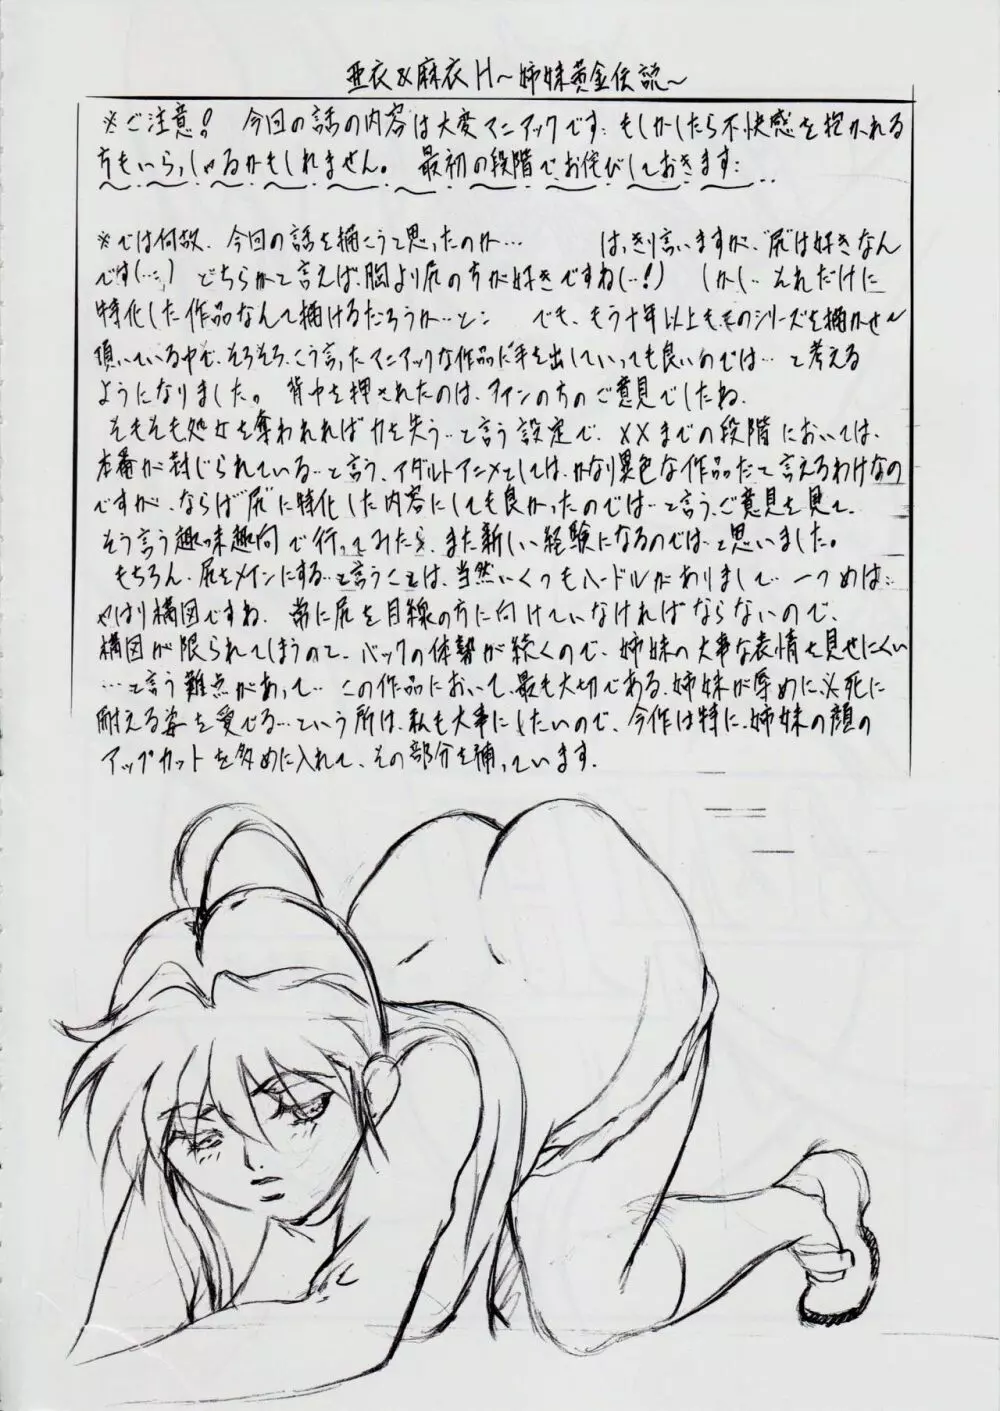 亜衣&麻衣H～姉妹黄金伝説～
※ご注意! 今回の話の内容は大変マニアックです… もしかしたら不快感を抱かれる
方もいらっしゃるかもしれません。 最初の段階でお侘びしておきます…
※では何故、今回の話を描こうと思ったのか… はっきり言いますが、尻は好きなん
です(…) どちらかて言えば、胸より尻の方が好きですね(…!) しかし… それだけに
特化した作品なんて描けるだろうか…と… でも、もう十年以上もこのシリーズを描かせ
頂いている中で、そろそろ、こう言ったマニアックな作品に手を出していっても良いのでは… と考える
ようになりました。 背中を押されたのは、ファンの方のご意見でしたね。
そもそも処女を奪われれば力を失う…と言う設定で、××までの段階においては、
本番が封じられている…と言う、アダルトアニメとしては、かなり異色な作品だて言えるわけなの
ですが、ならば「尻」に特化した内容にしても良かったのでは…と言う、ご意見を見て、
そう言う趣味趣向で行ってみたら、また新しい経験になるのでは…と思いました。
もちろん、尻をメインにする…と言うことは、当然いくつもハードルがありまして… 一つめは…
やはり構図ですね。 常に尻を目線の方に向けていなければならないので、
構図が限られてしまうので、バックの体勢が続くので、姉妹の大事な表情を見せにくい
…と言う難点があって… この作品において、最も大切である、姉妹が辱めに必死に
耐える姿を愛でる…という所は、私も大事にしたいので、今作は特に、姉妹の顔の
アップカットを多めに入れて、その部分を補っています。